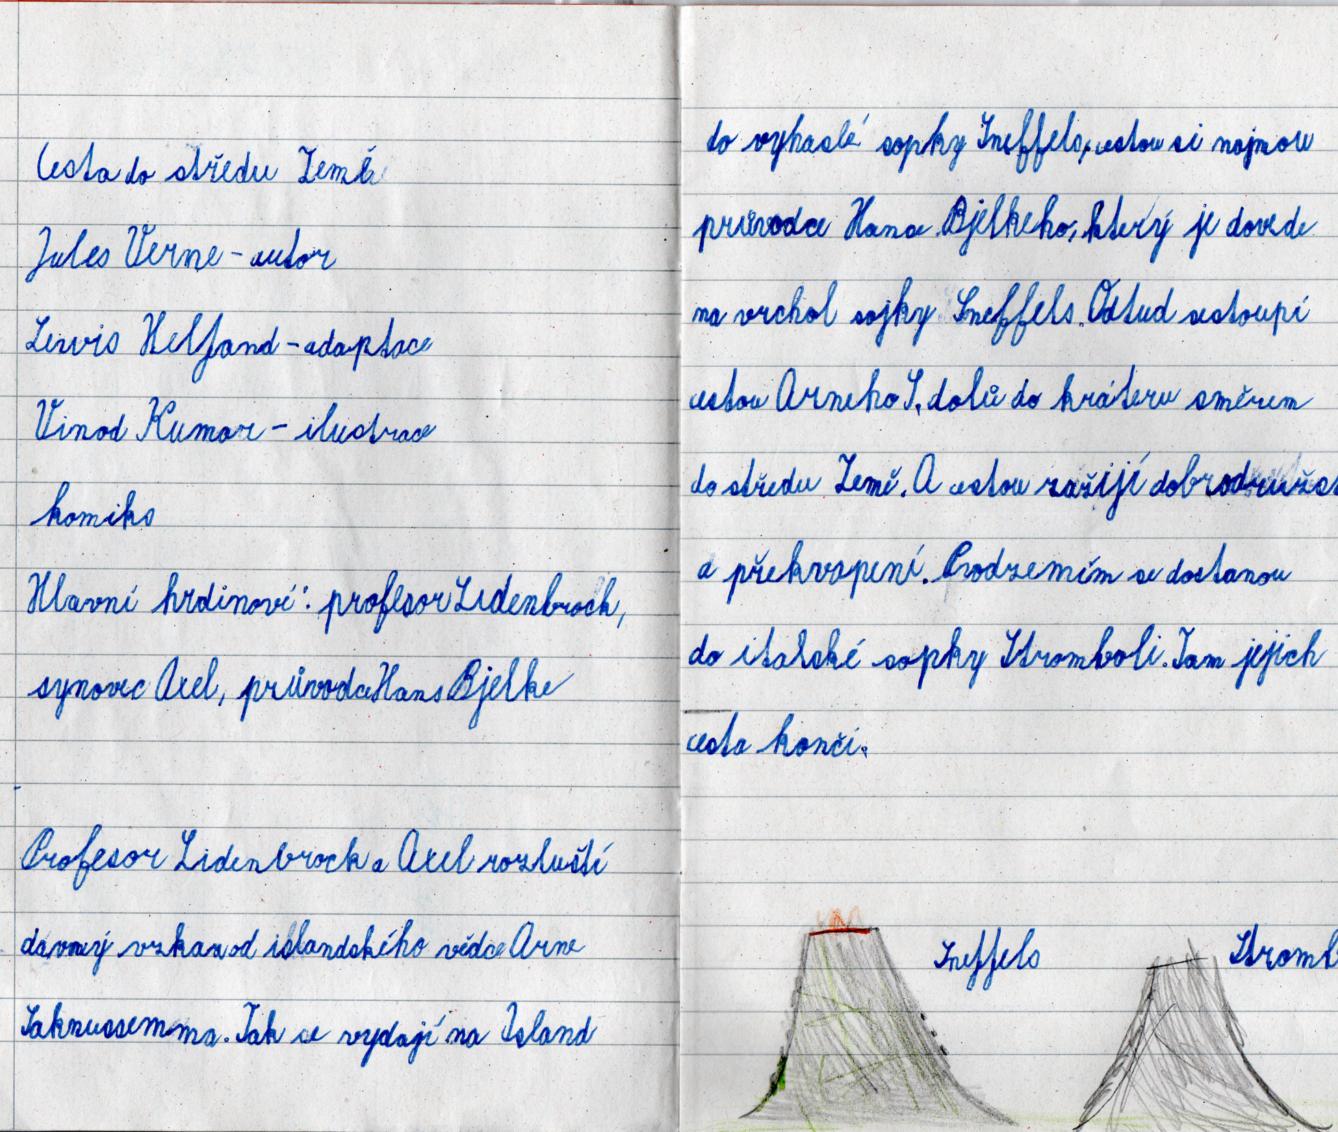 Cesta do středu Země
Jules Verne - autor
Lewis Helfand - adaptace
Vinod Kumar - ilustrace
komiks
Hlavní hrdinoví: profesor Lidenbrock,
synovec Axel, průvodce Hans Bjelke
Profesor Lidenbrock a Axel rozluští
dávný vzkaz od islandského vědce Arne
Saknussemma. Tak se vydají na Island
do vyhaslé sopky Sneffels, cestou si najmou
průvodce Hanse Bjelkeho, který je dovede
na vrchol sopky Sneffels. Odtud sestoupí
cestou Arneho S. dolů do kráteru směrem
do středu Země. A cestou zažijí dobrodružst
a překvapení. Podzemím se dostanou
do italské sopky Stromboli. Tam jejich
cesta končí.
Sneffels
Stromb